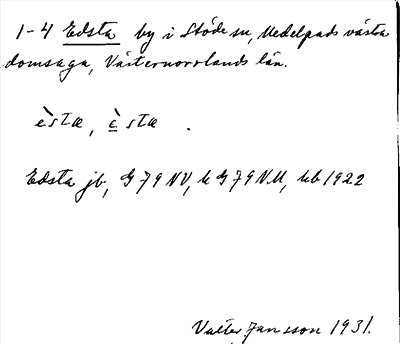 1-4 Edsta by i Stöde sn, Medelpads västra
domsaga, Västernorrlands län.
èstæ, è̱stæ.
Edsta jb, G 79 NV, k G 79 NV, utb 1922
Valter Jansson 1931.